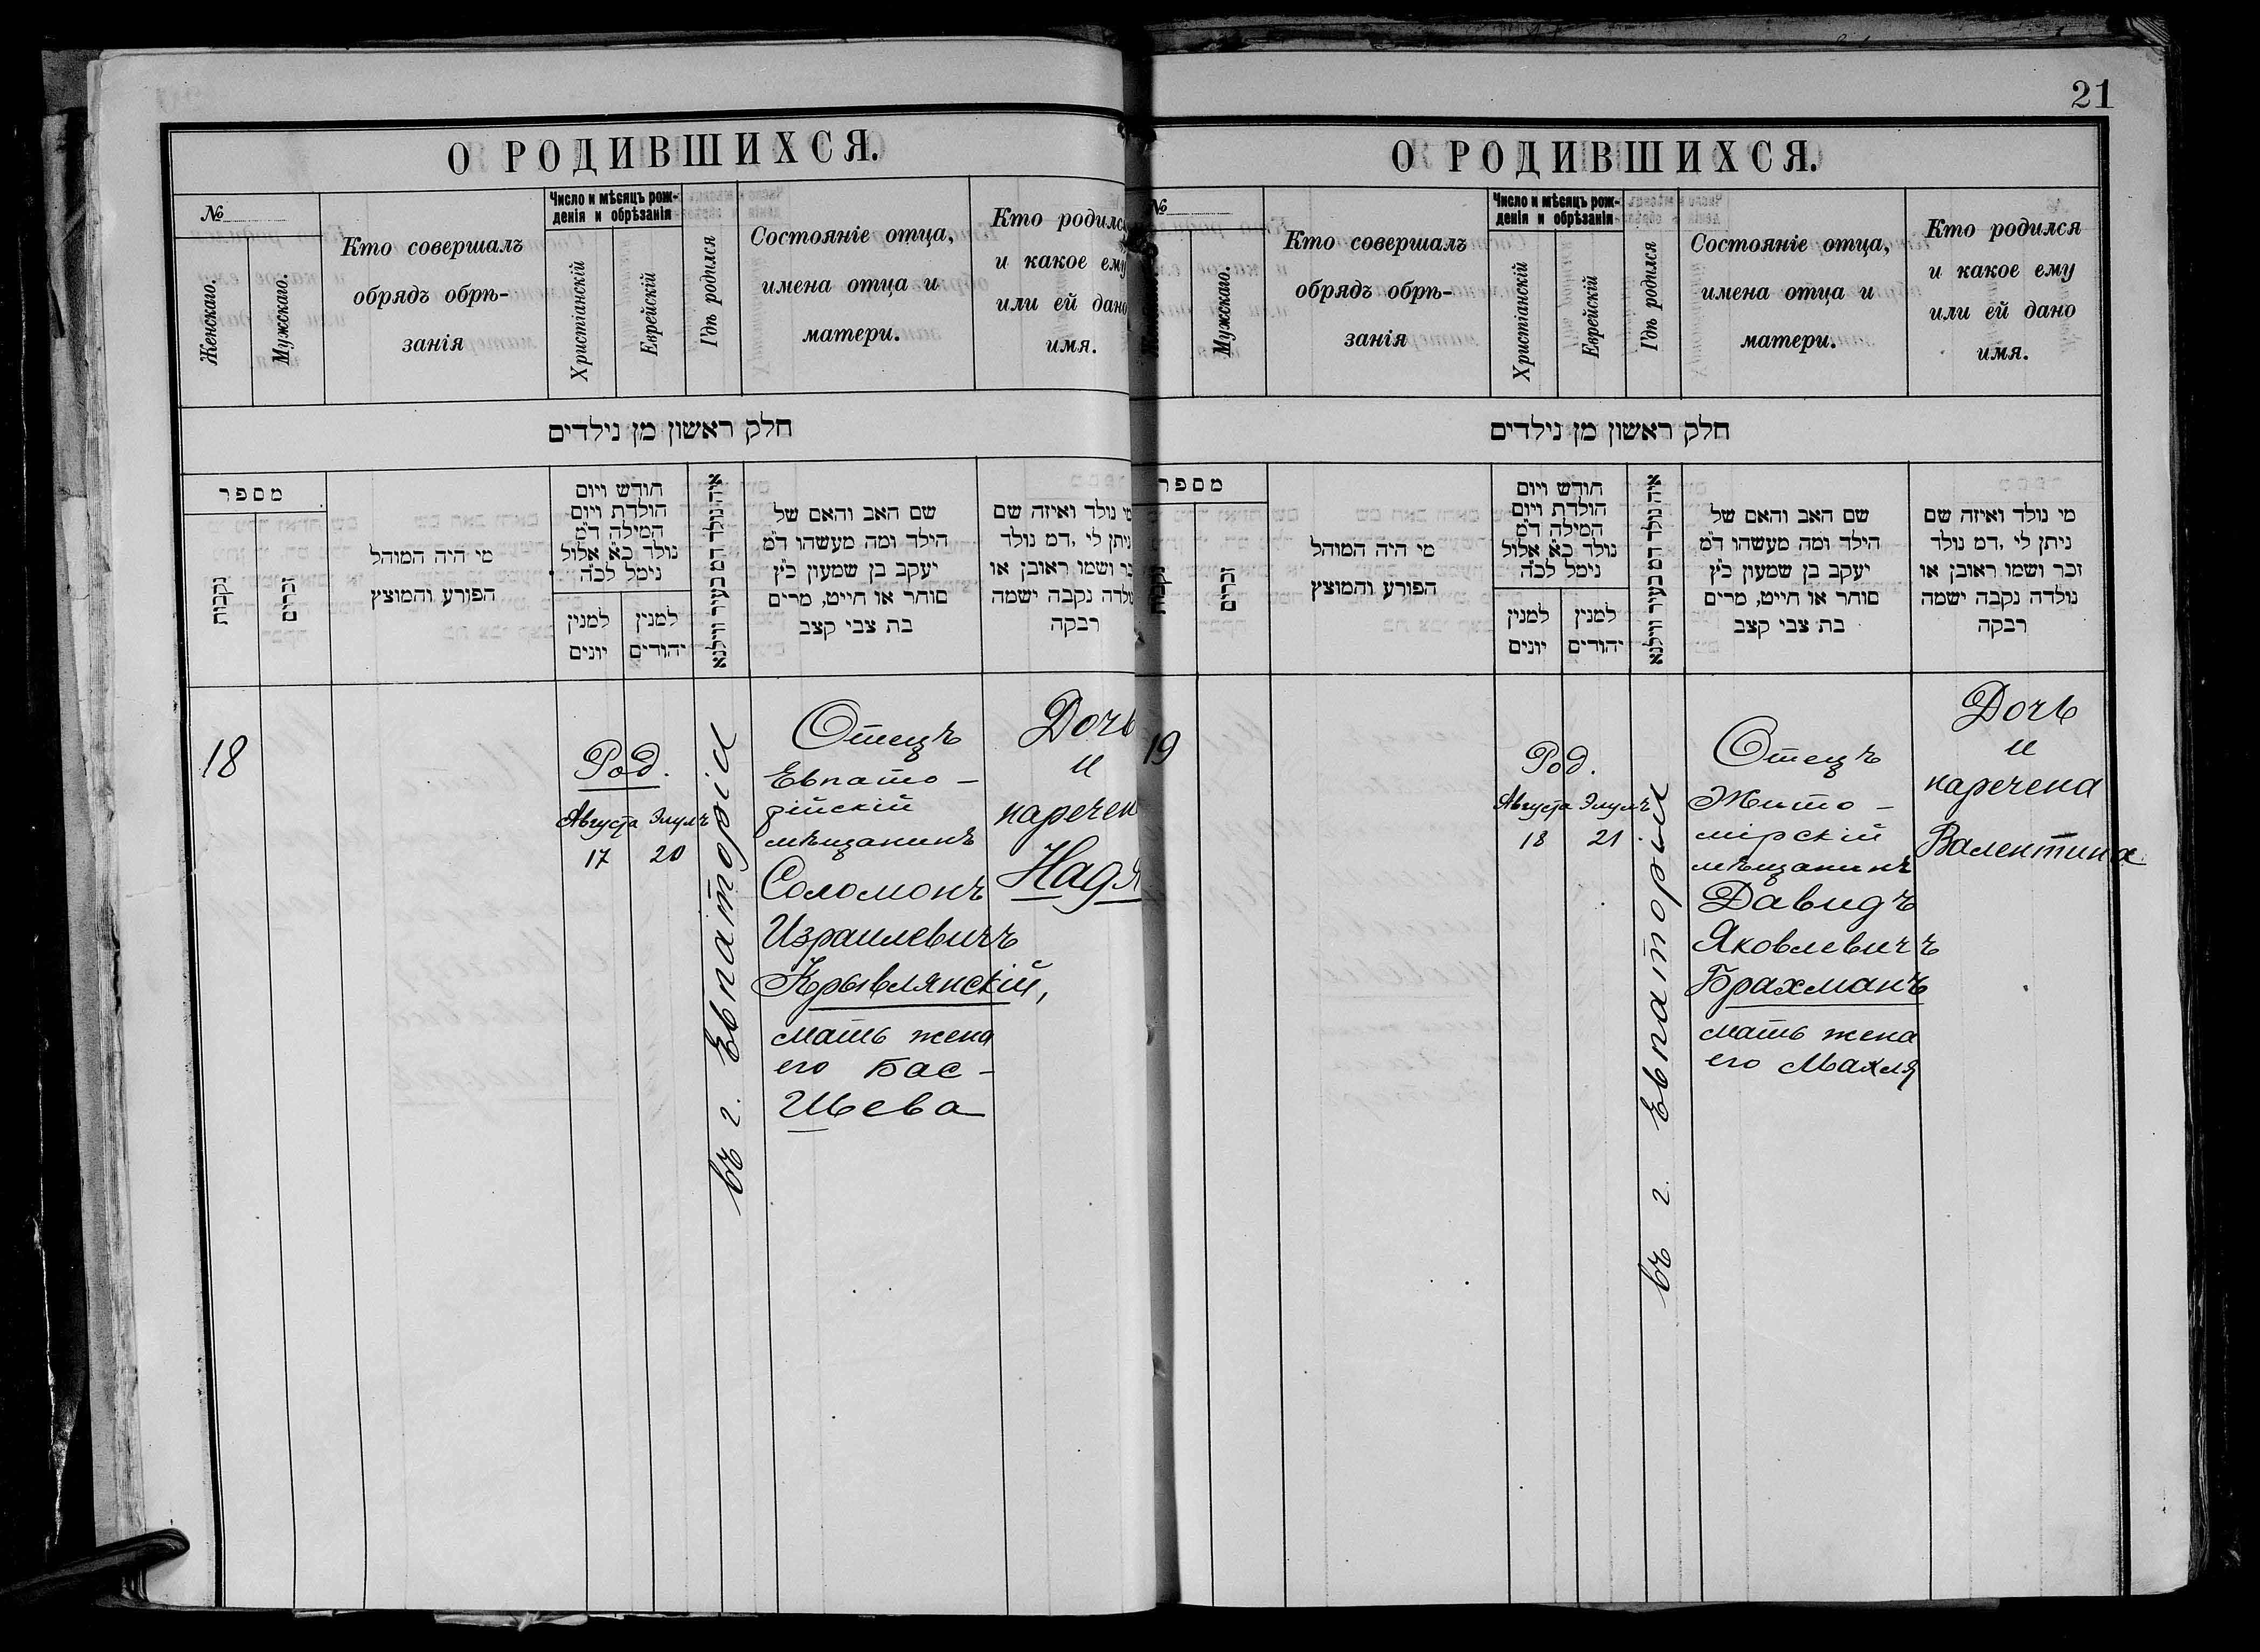 О РОДИВШИХСЯ.
№
Женскаго.
Мужскаго.
Кто совершалъ
обрядъ обрѣ-
занія
Число и мѣсяцъ рож-
денія и обрѣзанія
Христіанскій
Еврейскій
Гдѣ родился
Состояніе отца,
имена отца и
матери.
Кто родилс
и какое ему
или ей дано
имя.
חלק ראשון מן נילדים
מספר
נקבות
זכרים
מי היה המוהל
הפורע והמוצץ
חודש ויום
הולדת ויום
המילה ד״מ
נולד כ״א אלול
נימל לכ״ה
למנין
יונים
למנין
יהודים
איה נולד דמ בעיר ווילנא
שם האב והאם של
הילד ומה מעשהו ד״מ
יעקב בן שמעון כ״ץ
סוחר או חייט, מרים
בת צבי קצב
מי נולד ואיזה שם
ניתן לי ,דמ נולד
כר ושמו ראובן או
ולדה נקבה ישמה
רבקה
18
Род.
Августа Элулъ
17 20
въ г. Евпаторіи
Отецъ
Евпато-
рійскій
мѣщанинъ
Соломонъ
Израилевичъ
Крывлянскій,
мать жена
его Бас-
Шева
Дочь
и
наречен
Надя
21
О РОДИВШИХСЯ.
№
Мужскаго.
Кто совершалъ
обрядъ обрѣ-
занія
Число и мѣсяцъ рож-
денія и обрѣзанія
Христіанскій
Еврейскій
Гдѣ родился
Состояніе отца,
имена отца и
матери.
Кто родился
и какое ему
или ей дано
имя.
חלק ראשון מן נילדים
מספר
נקבות
זכרים
מי היה המוהל
הפורע והמוצץ
חודש ויום
הולדת ויום
המילה ד״מ
נולד כ״א אלול
נימל לכ״ה
למנין
יונים
למנין
יהודים
איה נולד דמ בעיר ווילנא
שם האב והאם של
הילד ומה מעשהו ד״מ
יעקב בן שמעון כ״ץ
סוחר או חייט, מרים
בת צבי קצב
מי נולד ואיזה שם
ניתן לי ,דמ נולד
זכר ושמו ראובן או
נולדה נקבה ישמה
רבקה
19
Род.
Августа Элулъ
18 21
въ г. Евпаторіи
Отецъ
Жито-
мірскій
мѣщанинъ
Давидъ
Яковлевичъ
Брахманъ
мать жена
его Махля
Дочь
и
наречена
Валентина